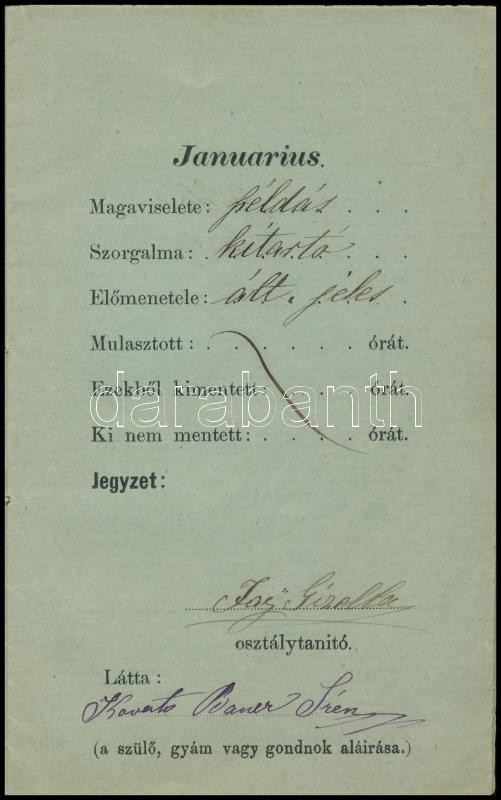 Januarius.
Magaviselete: példás . . .
Szorgalma: . kitartó . . .
Előmenetele: ált. jeles .
Mulasztott: . . . . . . órát.
Ezekből kimentett: . . . . órát.
Ki nem mentett: . . . . . órát.
darabanth
Jegyzet:
Gizella
osztálytanitó.
Látta:
Kovats Bauer Irén
(a szülő, gyám vagy gondnok aláirása.)